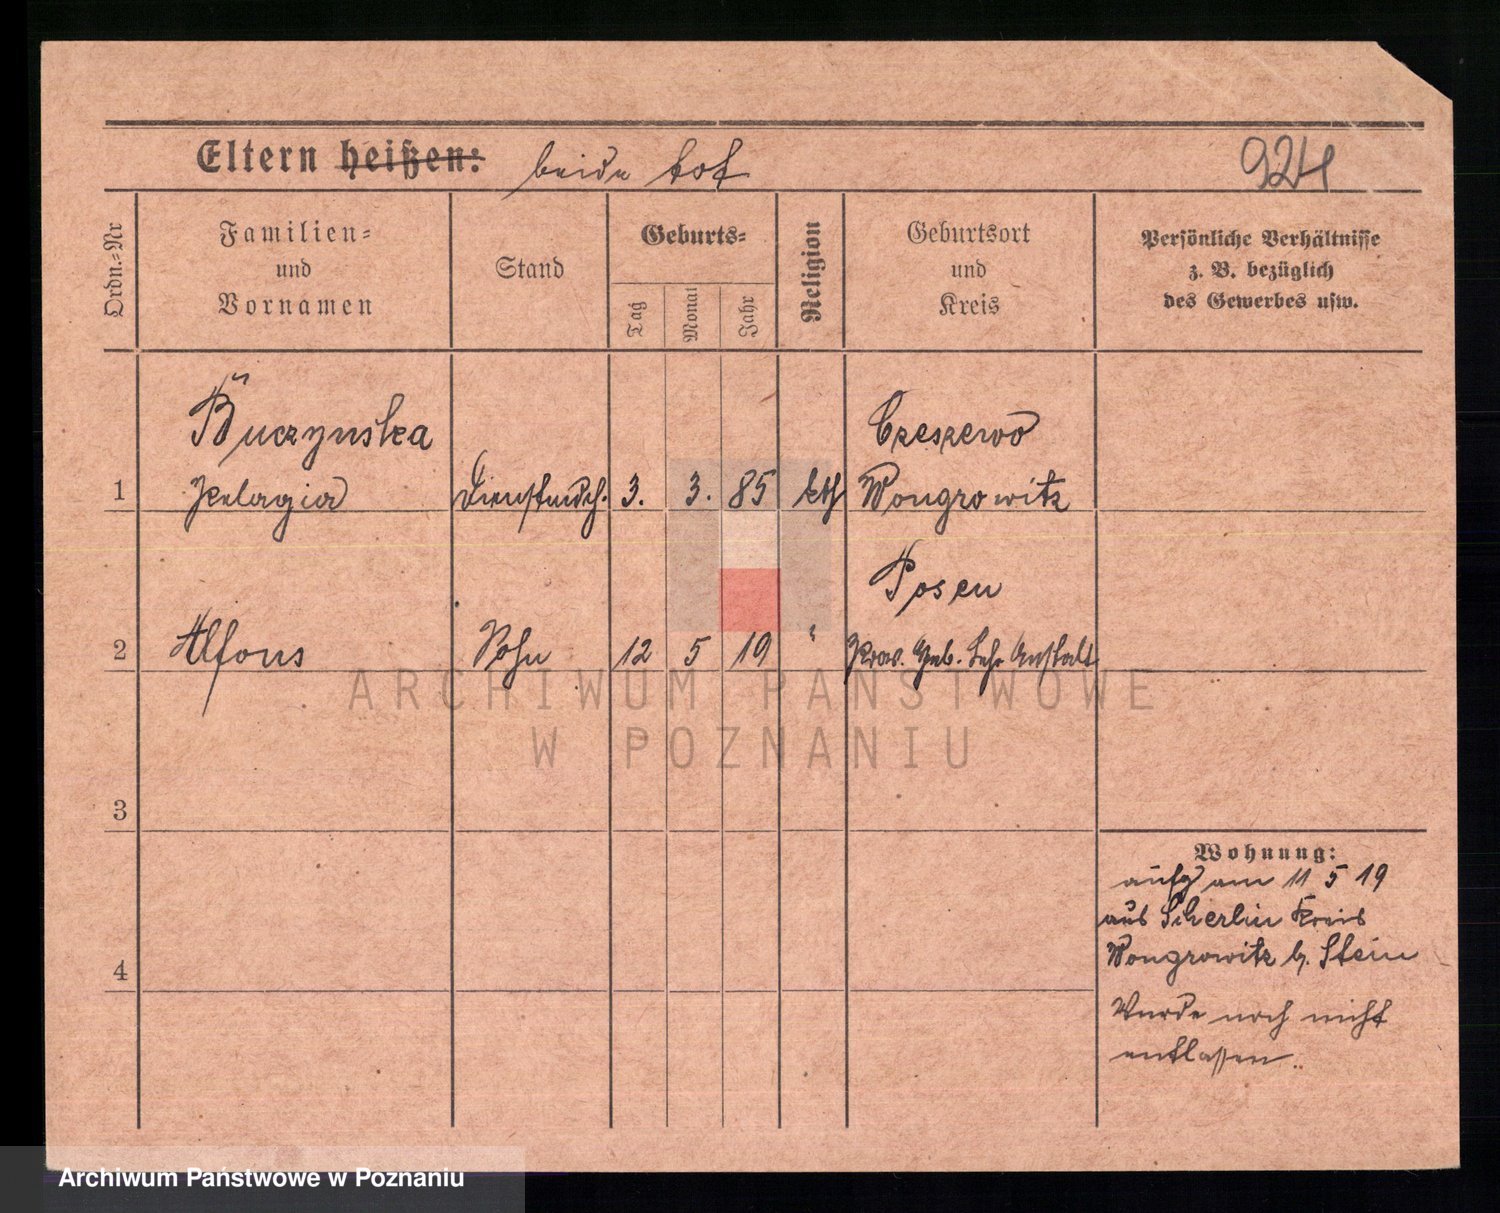 Eltern heißen: beide tot
924
Ordn.-Nr
Familien-
und
Vornamen
Stand
Geburts-
Tag
Monat
Jahr
Religion
Geburtsort
und
Kreis
Persönliche Verhältnisse
z. B. bezüglich
des Gewerbes usw.
Buczynska
Czeszewo
1 Pelagia Dienstmdch. 3. 3. 85 kth Wongrowitz
Posen
2 Alfons Sohn 12 5 19 " Prov. Heb. Lehr Anstalt
ARCHIWUM PAŃSTWOWE
W POZNANIU
3
Wohnung:
aufg am 11 5 19
aus Scherlin Kreis
4 Wongrowitz b. Stein
Wurde noch nicht
entlassen.
Archiwum Państwowe w Poznaniu